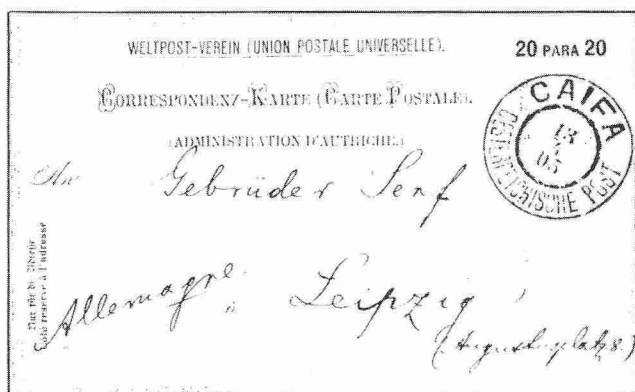 WELTPOST-VEREIN (UNION POSTALE UNIVERSELLE).
20 PARA 20
CORRESPONDENZ-KARTE (CARTE POSTALE).
(ADMINISTRATION D'AUTRICHE.)
CAIFA
13
05
OESTERREICHISCHE POST
An Gebrüder Senf
Nur für die Adresse
Côté réservé à l'adresse
Allemagne. Leipzig
(Augustusplatz 8.)